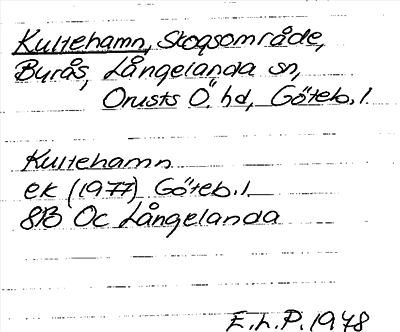 Kultehamn, Skogsområde,
Burås, Långelanda sn,
Orusts Ö. hd, Göteb. l.
Kultehamn
ek (1977) Göteb. l.
8B 0c Långelanda
E.h.P. 1948